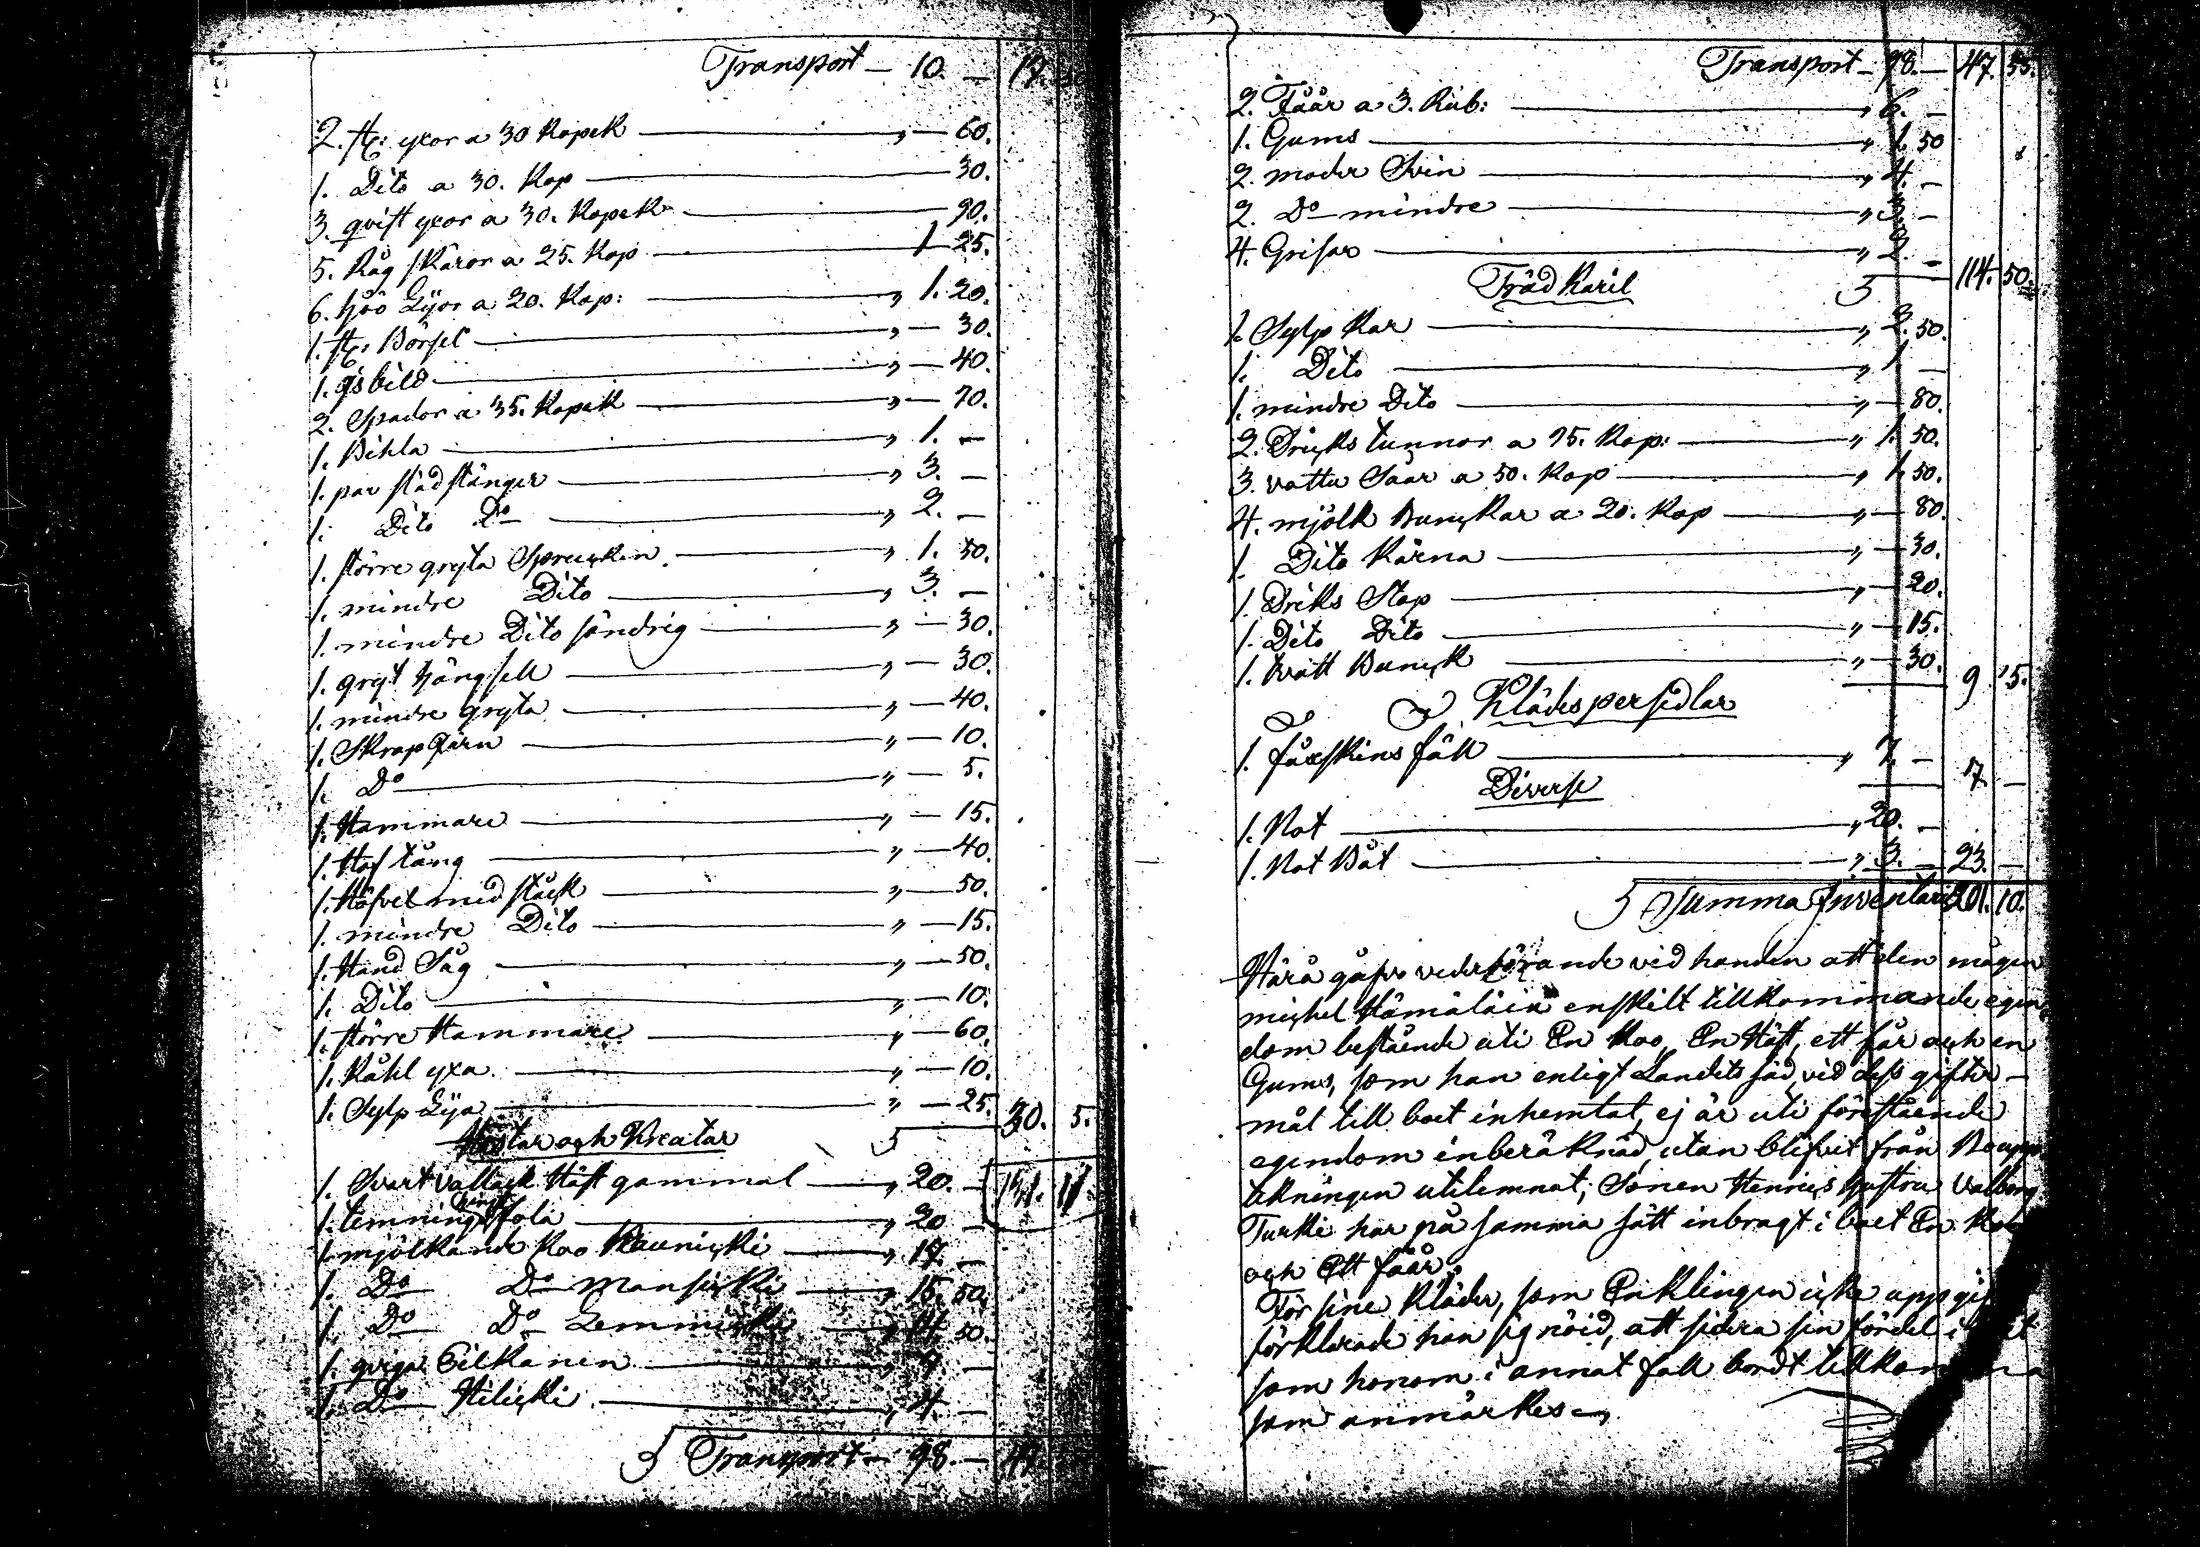 Transport — 10. — 17.
2. st: yxor a 30 Kopek — „ — 60.
1. Dito a 30. Kop — 30.
3. qvist yxor a 30. Kopek — 90.
5. Råg skäror a 25. Kop — 1 25.
6. höö Lijor a 20. Kop: — „ 1. 20.
1. st: — „ — 30.
1. isbild — „ — 40.
2. Spador a 35. Kopek — „ — 70.
1. Bihla — „ 1. —
1. par städstänger — „ 3. —
1. Dito Do — „ 2. —
1. större gryta Sprucken — „ 1. 50.
1. mindre Dito — „ 3. —
1. mindre Dito söndrig — „ — 30.
1. gryt hängsell — „ — 30.
1. mindre gryta — „ — 40.
1. Skrap Järn — „ — 10.
1. Do — „ — 5.
1. Hammare — „ — 15.
1. Hof tång — „ — 40.
1. Höfvel med stäck — „ — 50.
1. mindre Dito — „ — 15.
1. Hand Såg — „ — 50.
1. Dito — „ — 10.
1. större Hammare — „ — 60.
1. Kåhl yxa — „ — 10.
1. Sylp Lija — „ — 25. 30. 5.
Hästar och Kreatur
1. Svart vallack Häst gammal — „ 20. —
1. fola — „ 20 —
1. mjölkande Koo Kaunicki — „ 17. —
1. Do Do Mansicki — „ 15. 50.
1. Do Do Lemmicki — „ 14. 50.
1. qviga Eelkanen — „ 7. —
1. Do Hilicki — „ 4. —
Transport — 98. — 47.
Transport — 98. — 47. 55.
2. Fåår a 3. Rub: — „ 6. —
1. Gums — „ 1. 50
2. moder Svin — „ 4. —
2. Do mindre — „ 3. —
4. Grisar — „ 2. —
Träd Käril 114. 50.
1. Sylp Kar — „ 2. 50.
1. Dito — „ 1 —
1. mindre Dito — „ — 80.
2. Dricks tunnor a 75. Kop: — „ 1. 50.
3. vattu Såar a 50. Kop — „ 1. 50.
4. mjölk Bunckar a 20. Kop — „ — 80.
1. Dito Kärna — „ — 30.
1. Driks Stop — „ — 20.
1. Dito Dito — „ — 15.
1. tvätt Bunck — „ — 30.
9 5.
Klädespersedlar
1. fårskins fäll — „ 7. —
7 —
Diverse
1. Not — „ 20. —
1. Not Båt — „ 3. — 23. —
Summa Inventari 201. 10.
Härå gåfvo vederbörande vid handen att den mågen
michel Hämäläin enskilt tillkommande egen
dom bestående uti En Koo, En Häst, ett får och en
Gums, som han enligt Landets sed vid dess gifter-
mål till boet inhemtat, ej är uti förestående
egendom inberäknad, utan blifvit från Boupp
tekningen utelemnat; Sonen Henrics hustru Valborg
Turki har på samma sätt inbragt i boet En Koo
och Ett fåår.
För sine Kläder, som Enklingen icke uppgif
förklarade han sig nöid, att sidera sin fördel i
som honom i annat fall bordt tillkomma
som anmärkes